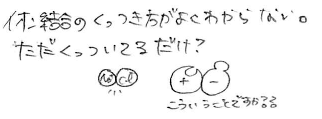 イオン結合のくっつき方がよくわからない。
ただくっついてるだけ?
Na Cl + −
こういうことですかるる